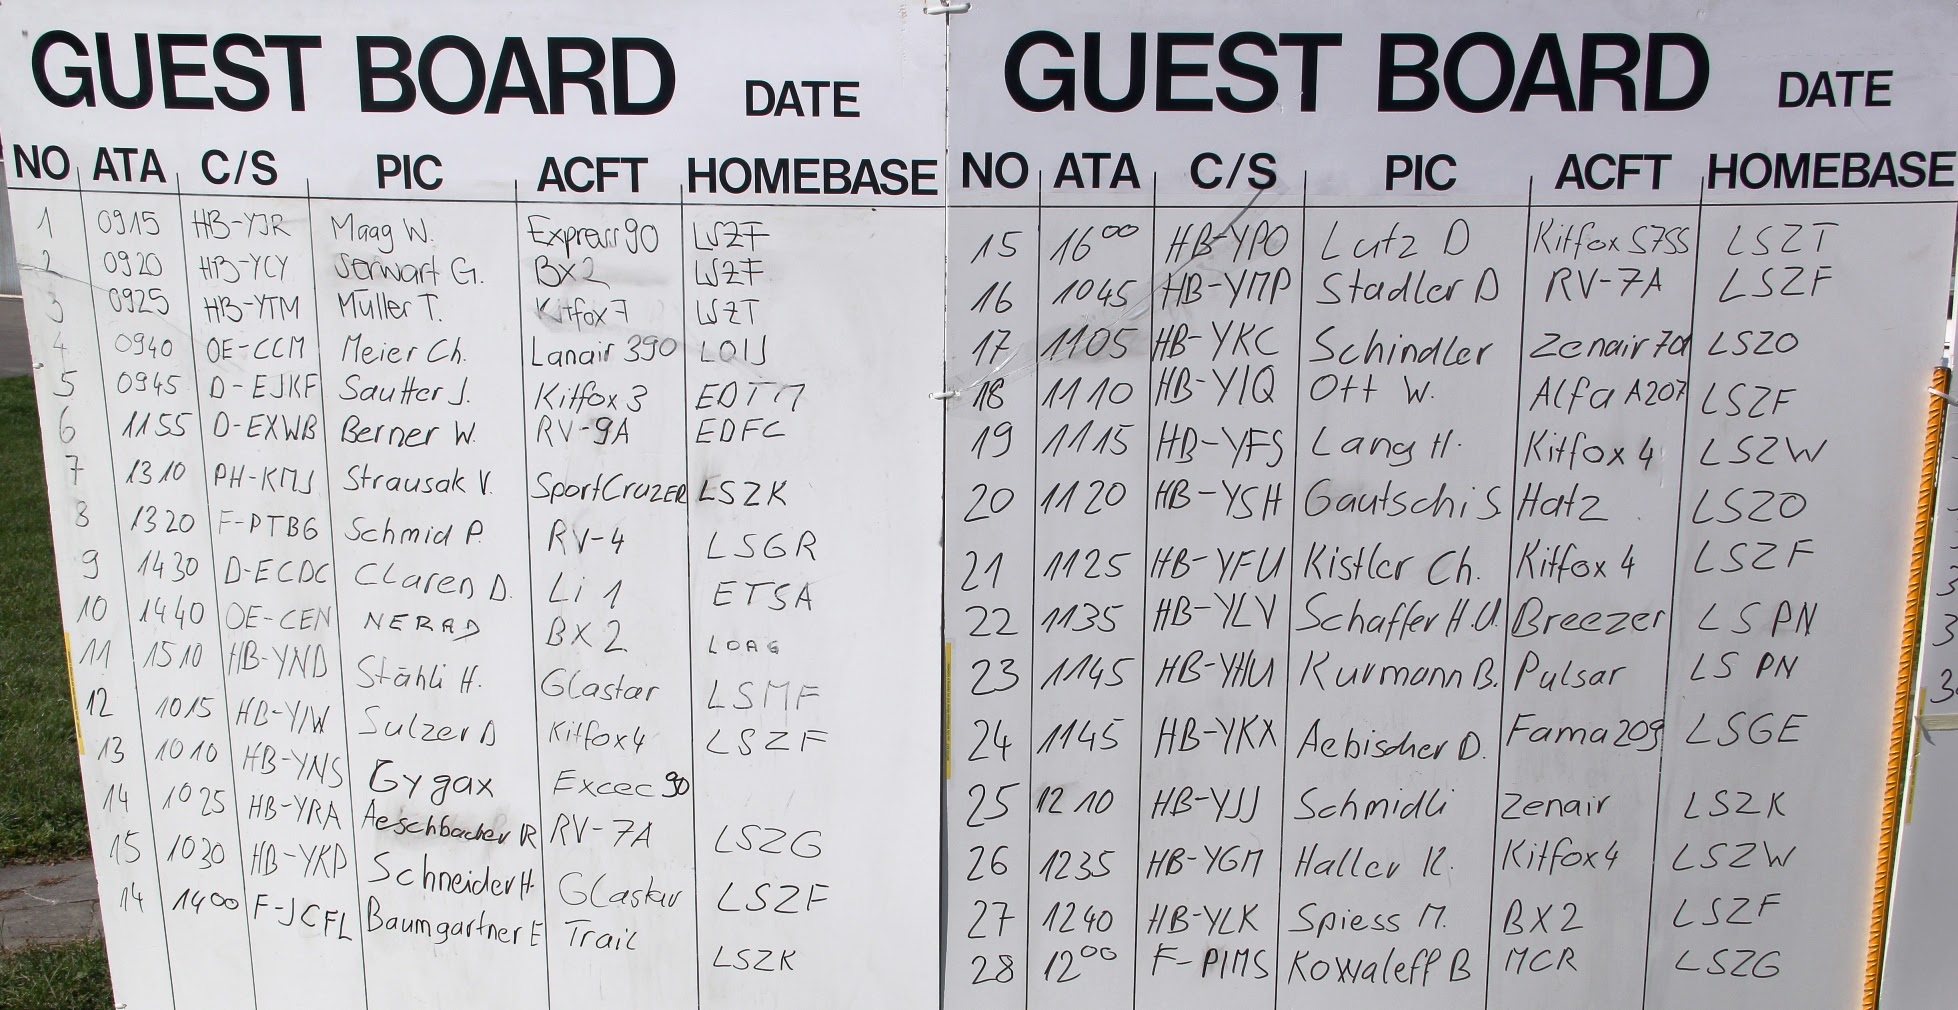 GUEST BOARD DATE
NO ATA C/S PIC ACFT HOMEBASE
1 0915 HB-YJR Maag W. Express 90 LSZF
2 0920 HB-YCY Serwart G. BX2 LSZF
3 0925 HB-YTM Müller T. Kitfox 7 LSZT
4 0940 OE-CCM Meier Ch. Lanair 390 LOIJ
5 0945 D-EJKF Sautter J. Kitfox 3 EDTM
6 1155 D-EXWB Berner W. RV-9A EDFC
7 1310 PH-KMJ Strausak V. SportCruzer LSZK
8 1320 F-PTBG Schmid P. RV-4 LSGR
9 1430 D-ECDC Claren D. Li 1 ETSA
10 1440 OE-CEN NERAD BX2 LOAG
11 1510 HB-YND Stähli H. Glastar LSMF
12 1015 HB-YIW Sulzer D Kitfox 4 LSZF
13 1010 HB-YNS Gygax Excec 90
14 1025 HB-YRA Aeschbacher R RV-7A LSZG
15 1030 HB-YKP Schneider H. Glastar LSZF
14 1400 F-JCFL Baumgartner E Trail LSZK
GUEST BOARD DATE
NO ATA C/S PIC ACFT HOMEBASE
15 16⁰⁰ HB-YPO Lutz D Kitfox S7SS LSZT
16 1045 HB-YMP Stadler D RV-7A LSZF
17 1105 HB-YKC Schindler Zenair 701 LSZO
18 1110 HB-YIQ Ott W. Alfa A207 LSZF
19 1115 HB-YFS Lang H. Kitfox 4 LSZW
20 1120 HB-YSH Gautschi S Hatz LSZO
21 1125 HB-YFU Kistler Ch. Kitfox 4 LSZF
22 1135 HB-YLV Schaffer H.U. Breezer LSPN
23 1145 HB-YHU Kurmann B. Pulsar LSPN
24 1145 HB-YKX Aebischer D. Fama 209 LSGE
25 1210 HB-YJJ Schmidli Zenair LSZK
26 1235 HB-YGM Haller R. Kitfox 4 LSZW
27 1240 HB-YLK Spiess M. BX2 LSZF
28 12⁰⁰ F-PIMS Kowaleff B MCR LSZG